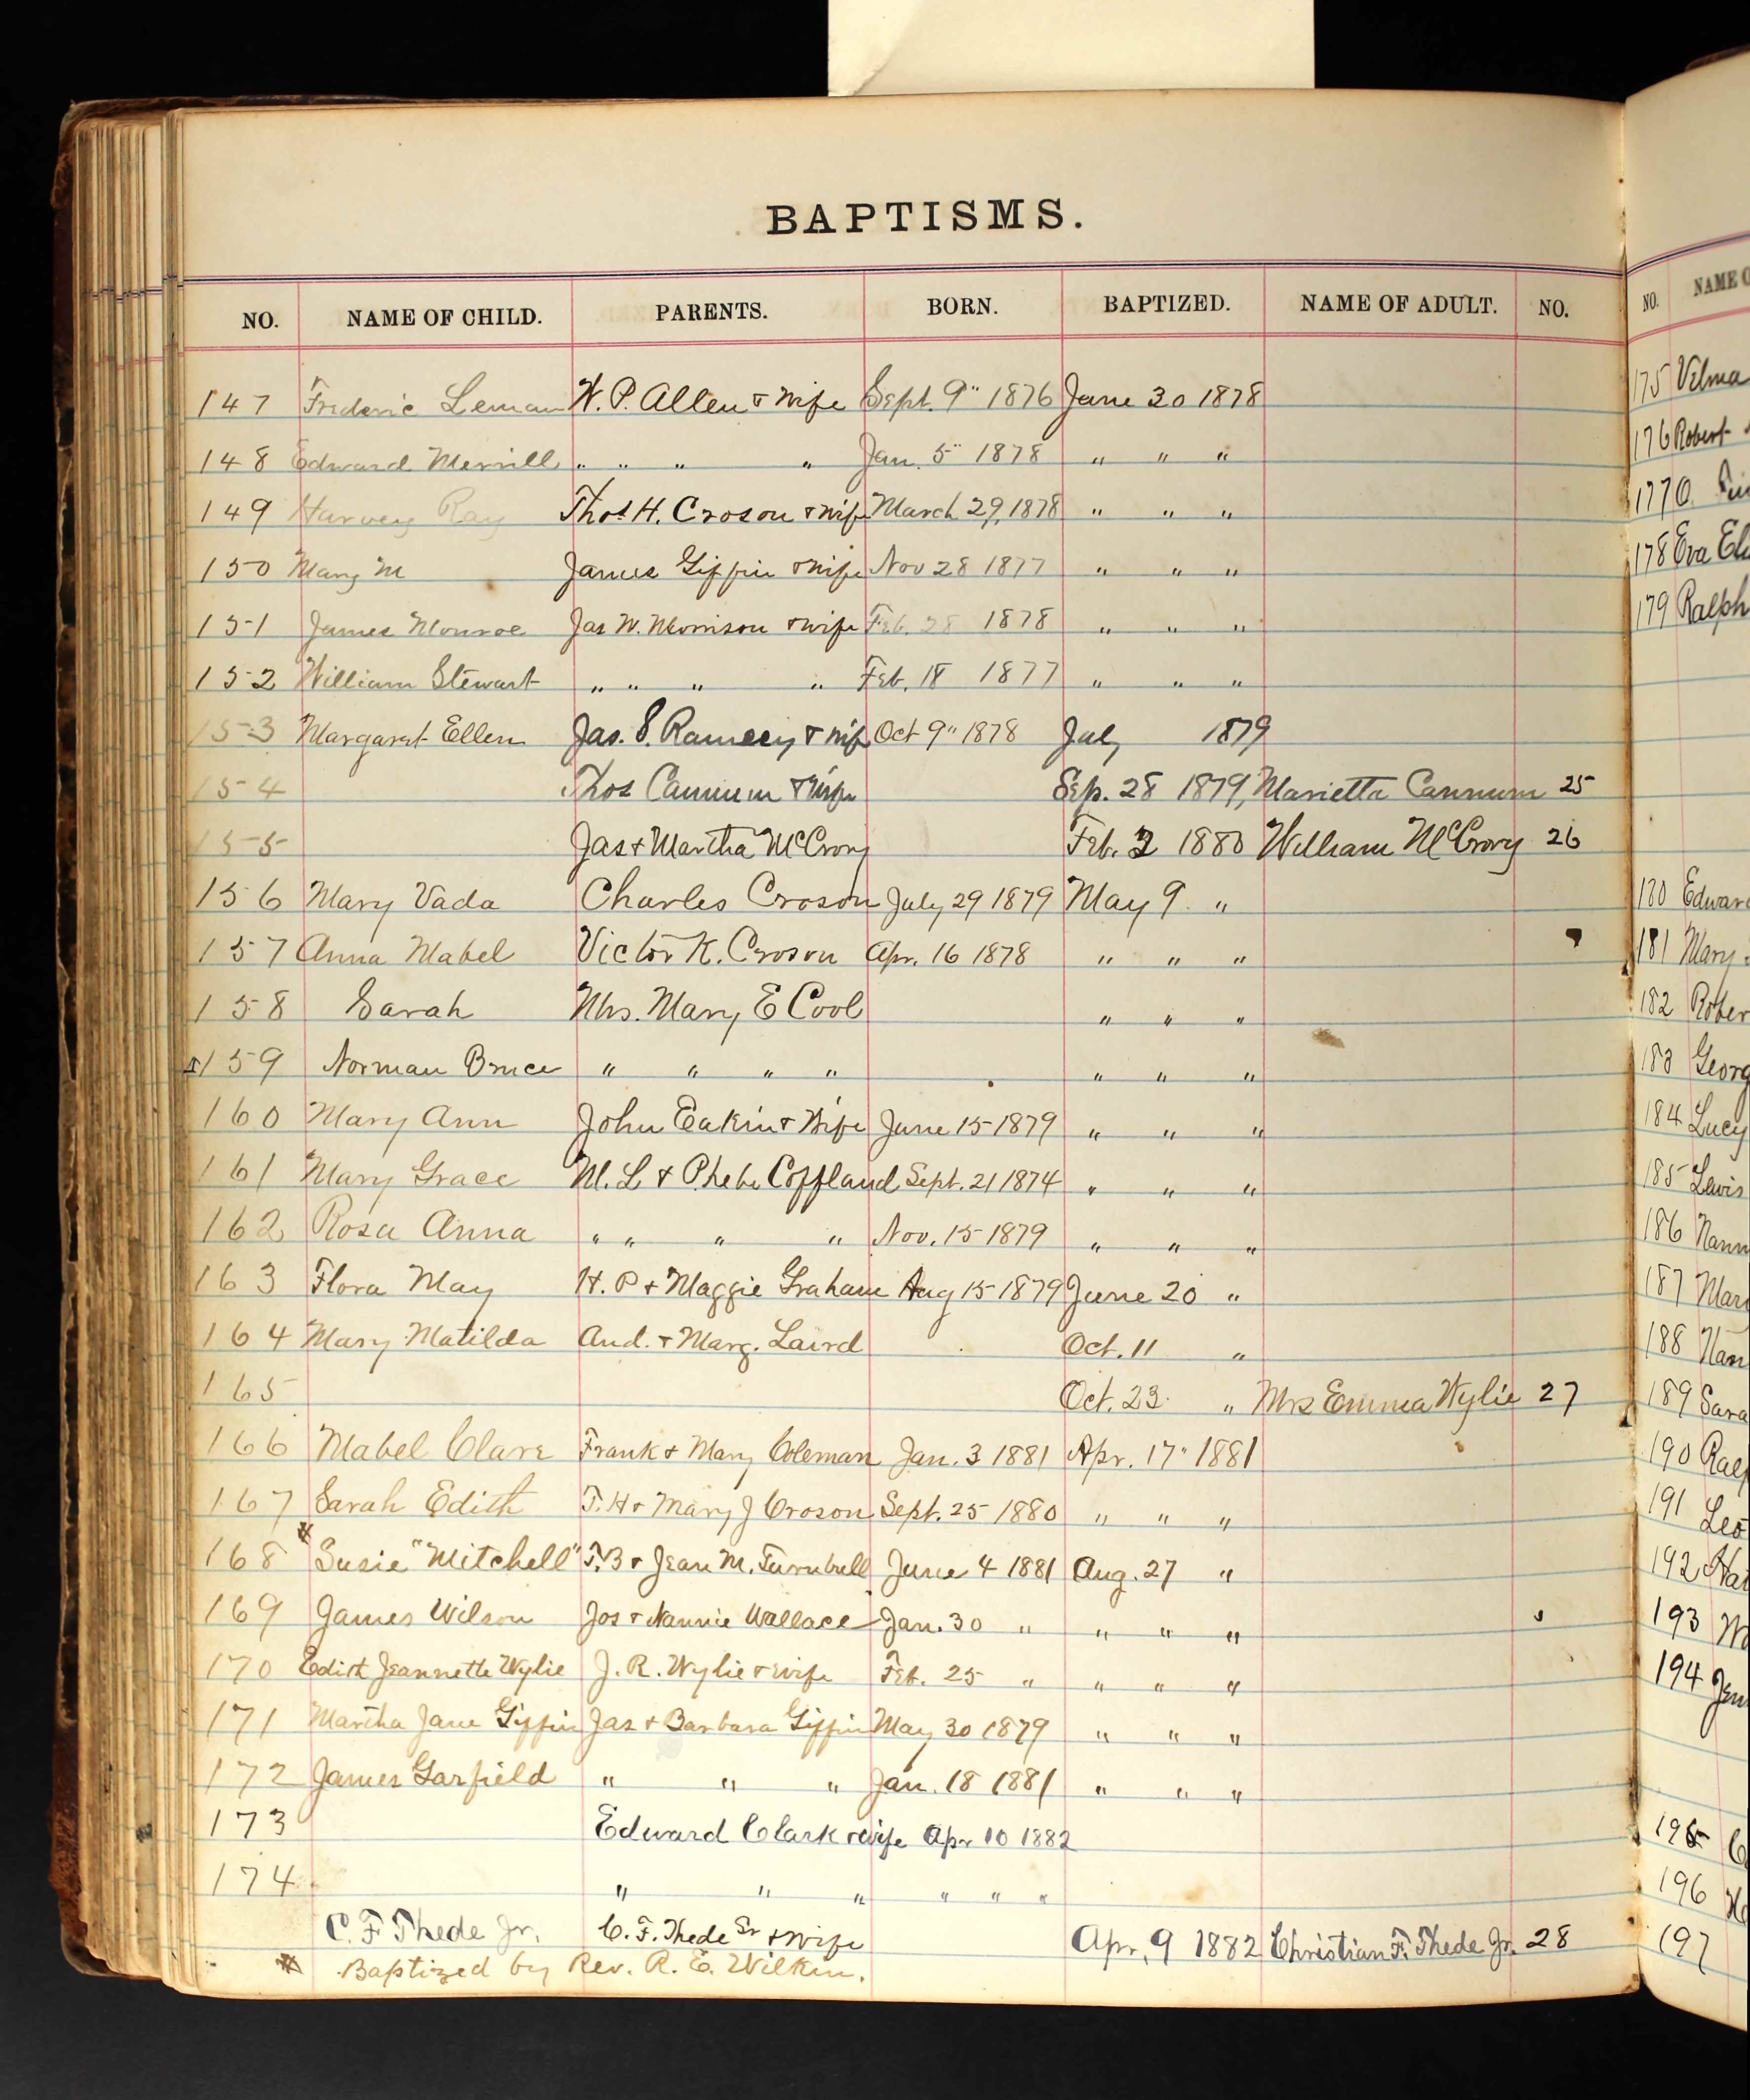 BAPTISMS.
NO. NAME OF CHILD. PARENTS. BORN. BAPTIZED. NAME OF ADULT. NO.
147 Frederic Leman W. P. Allen & Wife Sept. 9" 1876 June 30 1878
148 Edward Merrill " " " " Jan. 5" 1878 " " "
149 Harvey Ray Thos H. Croson & wife March 29, 1878 " " "
150 Mary M James Giffin & wife Nov 28 1877 " " "
151 James Monroe Jas W. Morrison & wife Feb. 28 1878 " " "
152 William Stewart " " " " Feb. 18 1877 " " "
153 Margaret Ellen Jas. S. Ramsey & wife Oct 9" 1878 July 1879
154 Thos Cannum & Wife Sep. 28 1879, Marietta Cannum 25
155 Jas & Martha McCrory Feb. 2 1880 William McCrory 26
156 Mary Vada Charles Croson July 29 1879 May 9 "
157 Anna Mabel Victor K. Croson Apr. 16 1878 " " "
158 Sarah Mrs. Mary E Cool " " "
159 Norman Bruce " " " " " " "
160 Mary Ann John Eakin & Wife June 15 1879 " " "
161 Mary Grace M. L & Phebe Coffland Sept. 21 1874 " " "
162 Rosa Anna " " " " Nov. 15 1879 " " "
163 Flora May H. P & Maggie Graham Aug 15 1879 June 20 "
164 Mary Matilda And. & Marg. Laird Oct. 11 "
165 Oct. 23 " Mrs Emma Wylie 27
166 Mabel Clare Frank & Mary Coleman Jan. 3 1881 Apr. 17" 1881
167 Sarah Edith T. H & Mary J Croson Sept. 25 1880 " " "
168 * Susie "Mitchell" T. B & Jean M. Turnbull June 4 1881 Aug. 27 "
169 James Wilson Jos & Nannie Wallace Jan. 30 " " " "
170 Edith Jeannette Wylie J. R. Wylie & wife Feb. 25 " " " "
171 Martha Jane Giffin Jas & Barbara Giffin May 30 1879 " " "
172 James Garfield " " " Jan. 18 1881 " " "
173 Edward Clark & wife Apr 10 1882
174 " " " " " "
C. F Thede Jr. C. F. Thede Sr & wife Apr, 9 1882 Christian F. Thede Jr. 28
* Baptized by Rev. R. E. Wilkin.
NO. NAME O
175 Vilma
176 Robert
177
178 Eva
179 Ralph
180 Edward
181 Mary
182 Rober
183 Georg
184 Lucy
185 Lewis
186 Nann
187
188 Nan
189 Sara
190
191
192
193
194
195
196
197